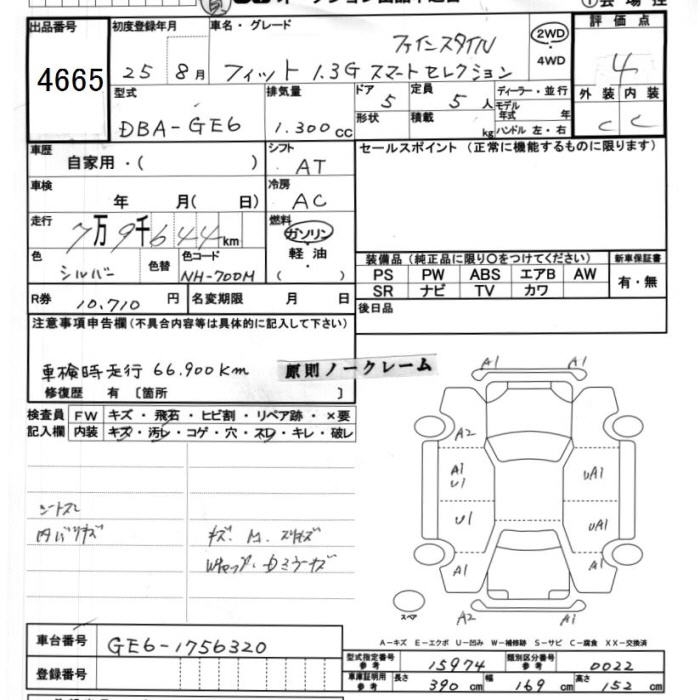 出品番号
4665
初度登録年月
25 8月
車名・グレード
ファインスタイル
フィット 1.3G スマートセレクション
2WD
4WD
評価点
4
外装 内装
C C
型式
DBA-GE6
排気量
1.300 cc
ドア 5
定員 5 人
形状
積載 kg
ディーラー・並行
モデル年式 年
ハンドル 左・右
車歴
自家用・( )
シフト
AT
セールスポイント (正常に機能するものに限ります)
車検
年 月( 日)
冷房
AC
走行
7万9千644km
燃料
ガソリン
軽油
( )
色
シルバー
色替
色コード
NH-700M
装備品 (純正品に限り〇をつけてください)
新車保証書
PS PW ABS エアB AW
有・無
SR ナビ TV カワ
R券 10,710 円
名変期限 月 日
後日品
注意事項申告欄 (不具合内容等は具体的に記入して下さい)
車検時走行 66.900km
原則ノークレーム
修復歴 有 〔箇所 〕
検査員
記入欄
FW キズ・飛石・ヒビ割・リペア跡・×要
内装 キズ・汚レ・コゲ・穴・ネロ・キレ・破レ
シートスレ
内バリキズ
A1 A1
A2
A1
U1
UA1
U1
UA1
A1 A1
A2 A1
スペア
A-キズ E-エクボ U-凹み W-補修跡 S-サビ C-腐食 XX-交換済
車台番号
GE6-1756320
登録番号
型式指定番号
参考
15974
類別区分番号
参考
0022
車庫証明用
参考
長さ 390 cm
幅 169 cm
高さ 152 cm